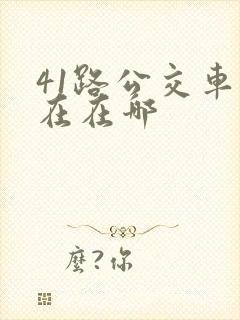 41路公交車
在在哪
麼?你